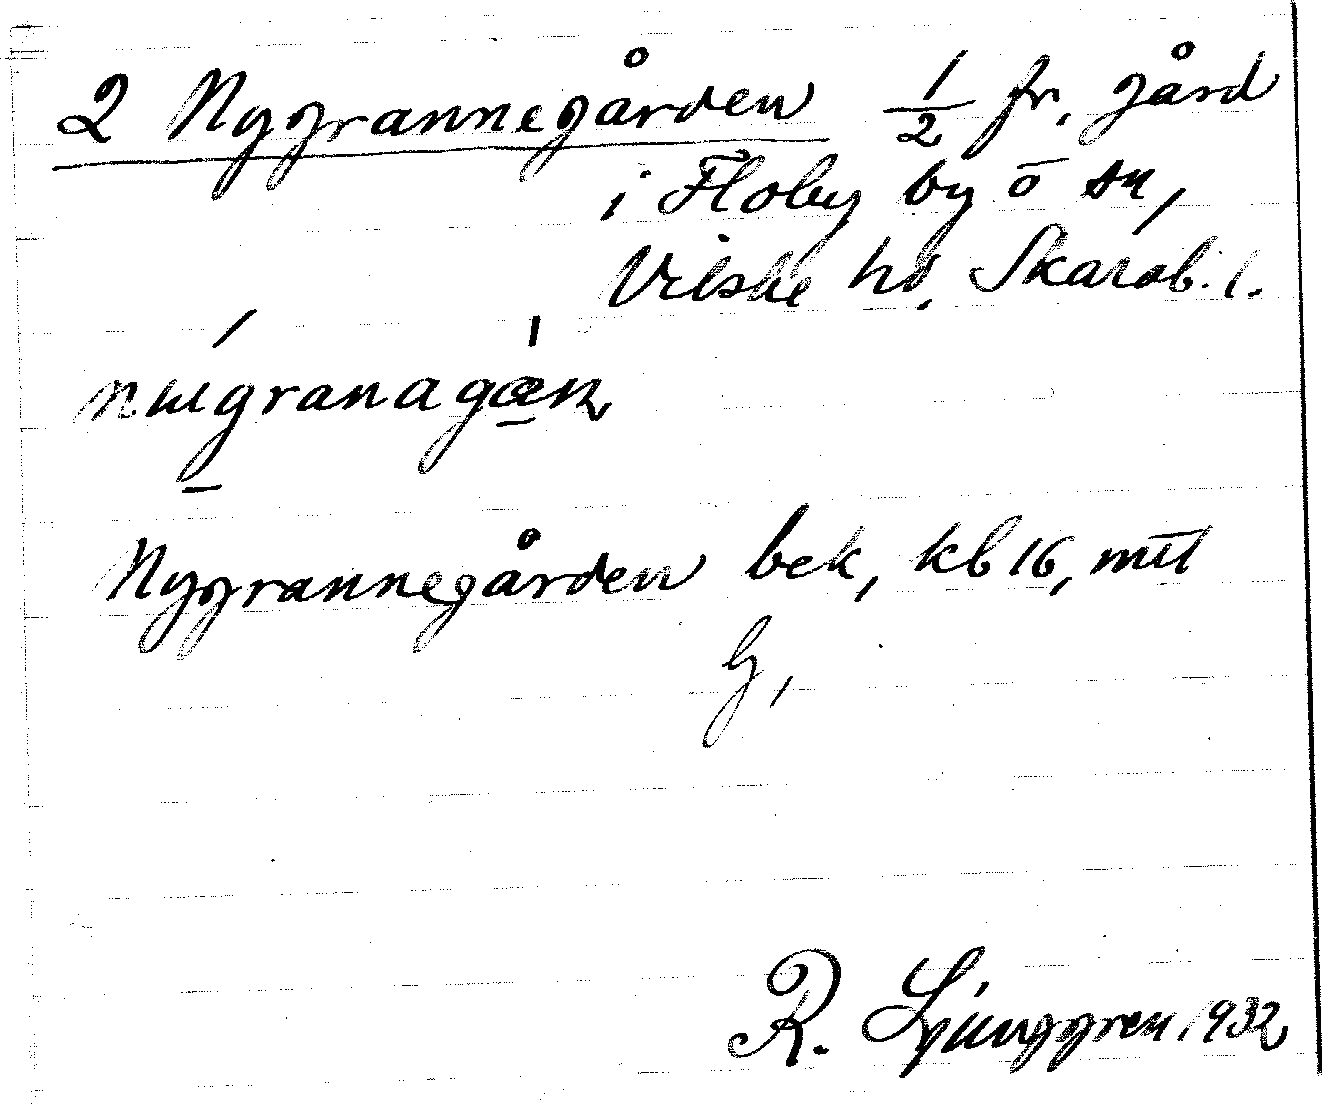 2 Nygrannegården 1/2 fr. gård
i Floby by o sn,
Vilske hd, Skarab. l.
Nygrannegården bek, kb 16, mtl
G,
R. Ljunggren 1932